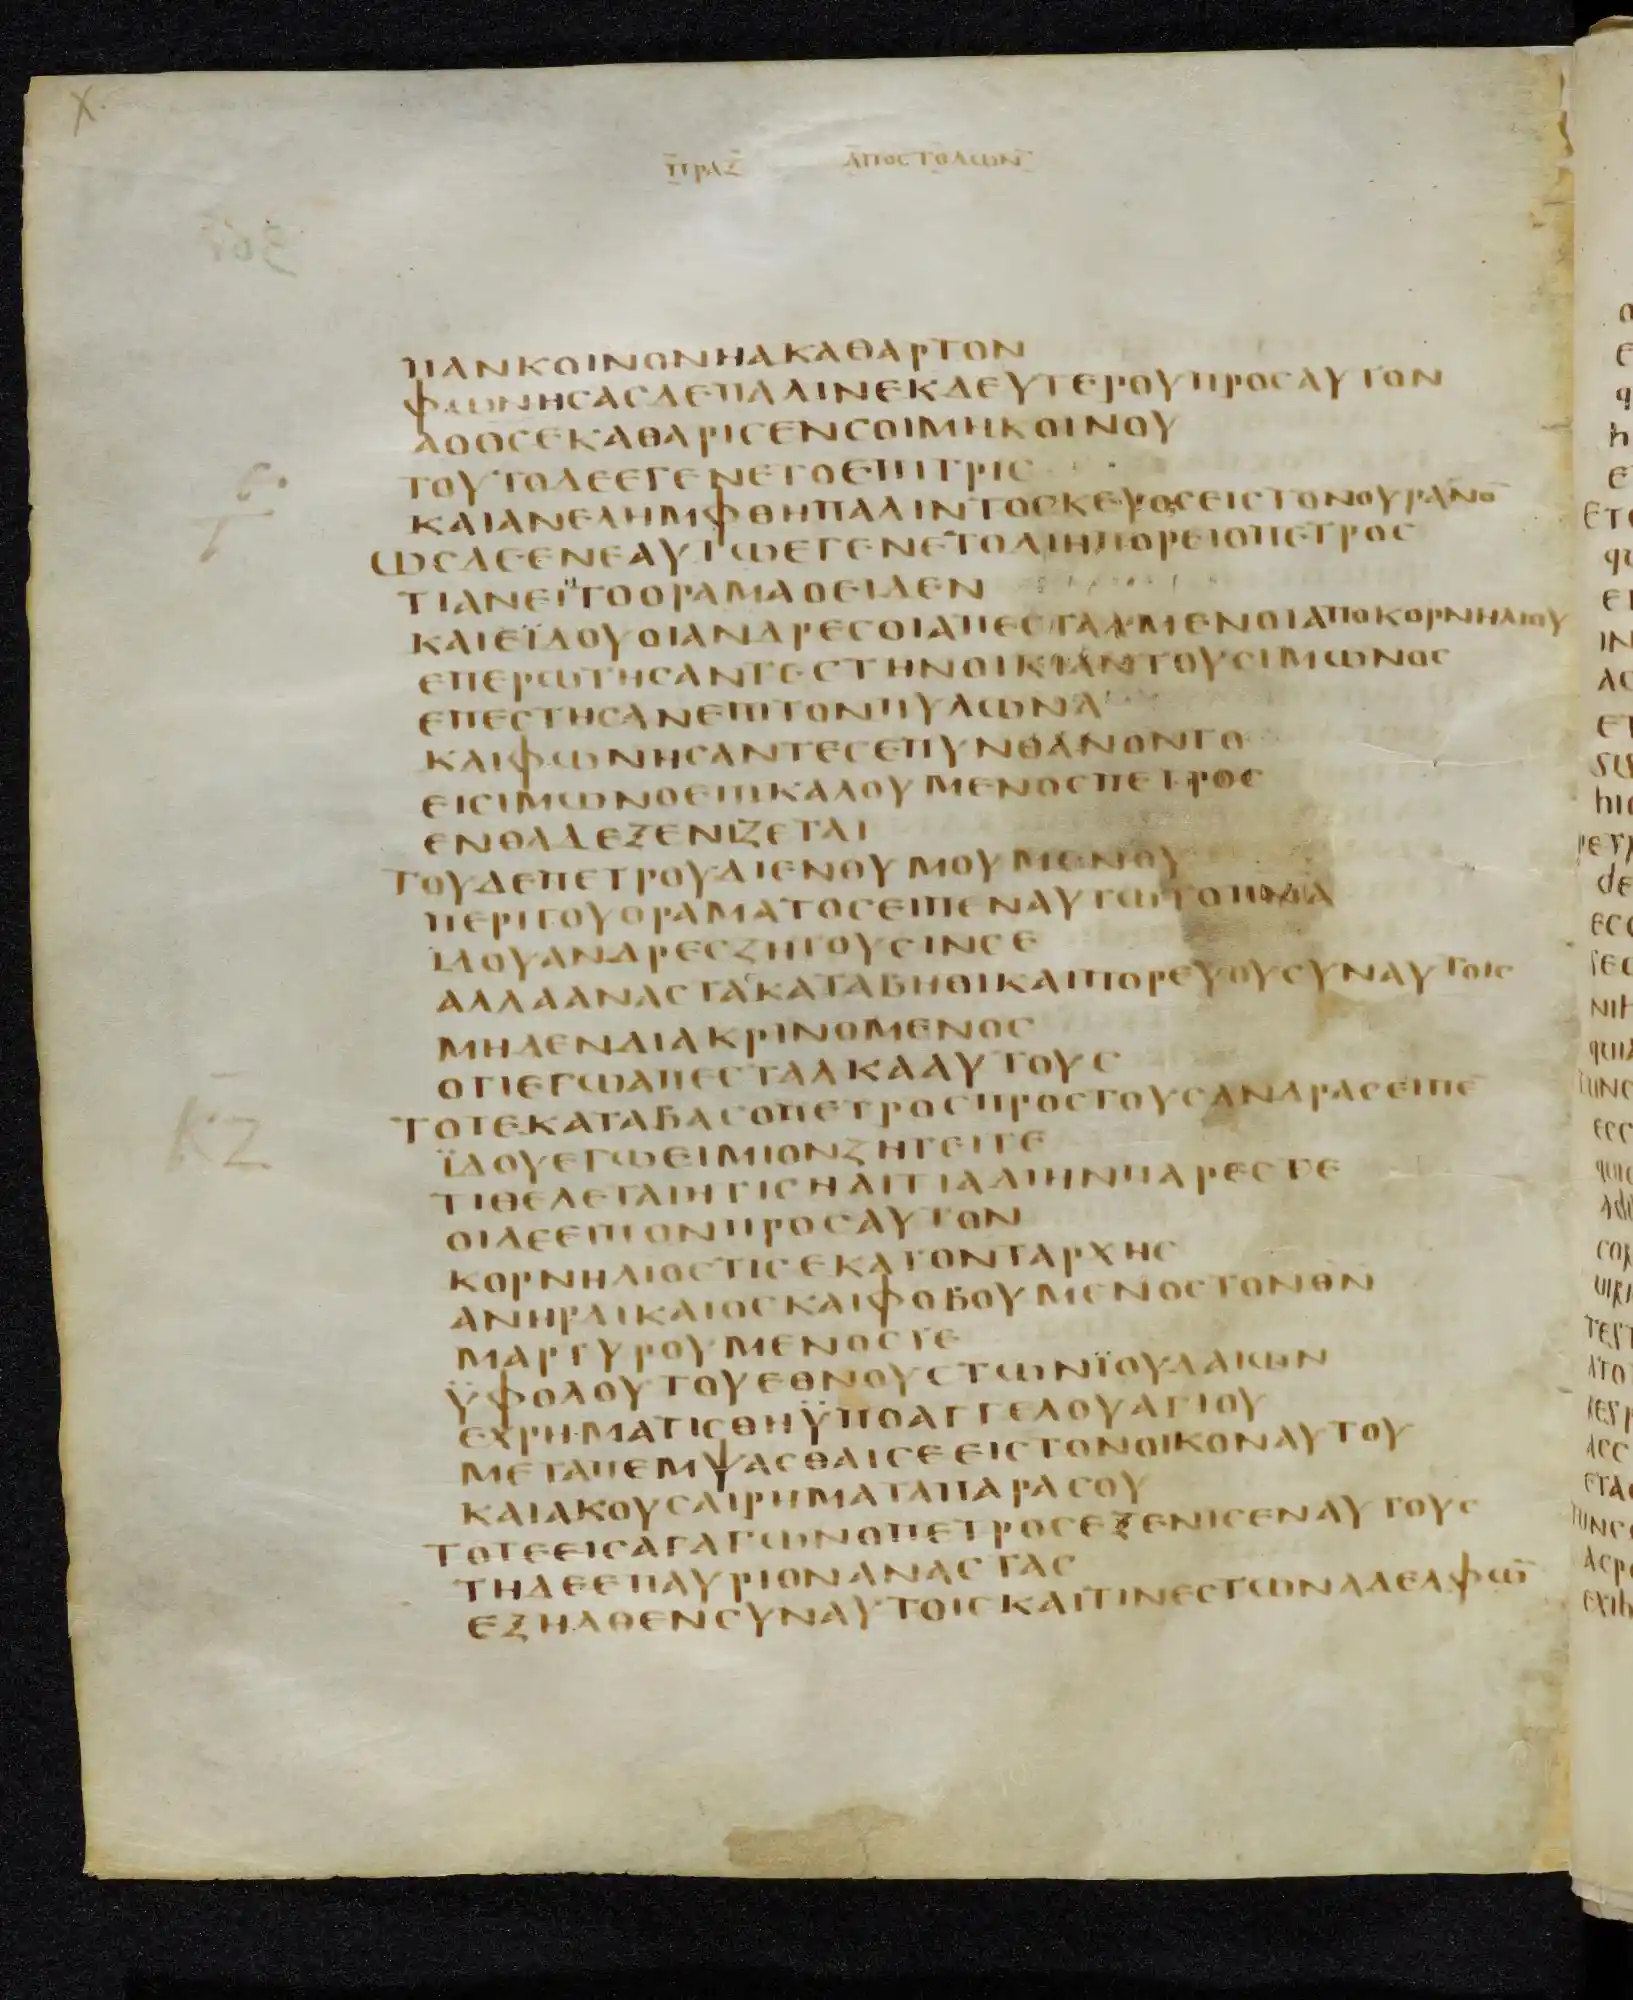 ΠΡΑΞ ΑΠΟΣΤΟΛΩΝ
ΠΑΝΚΟΙΝΟΝΗΑΚΑΘΑΡΤΟΝ
ΦΩΝΗϹΑϹΔΕΠΑΛΙΝΕΚΔΕΥΤΕΡΟΥΠΡΟϹΑΥΤΟΝ
ΑΟΘ̅Ϲ̅ΕΚΑΘΑΡΙϹΕΝϹΟΙΜΗΚΟΙΝΟΥ
ΤΟΥΤΟΔΕΕΓΕΝΕΤΟΕΠΙΤΡΙϹ
ΚΑΙΑΝΕΛΗΜΦΘΗΠΑΛΙΝΤΟϹΚΕΥΟϹΕΙϹΤΟΝΟΥΡΑΝΟ̅
ΩϹΔΕΕΝΕΑΥΤΩΕΓΕΝΕΤΟΔΙΗΠΟΡΕΙΟΠΕΤΡΟϹ
ΤΙΑΝΕΙΗΤΟΟΡΑΜΑΟΕΙΔΕΝ
ΚΑΙΕΪΔΟΥΟΙΑΝΔΡΕϹΟΙΑΠΕϹΤΑΛΜΕΝΟΙΑΠΟΚΟΡΝΗΛΙΟΥ
ΕΠΕΡΩΤΗϹΑΝΤΕϹΤΗΝΟΙΚΙΑΝΤΟΥϹΙΜΩΝΟϹ
ΕΠΕϹΤΗϹΑΝΕΠΙΤΟΝΠΥΛΩΝΑ
ΚΑΙΦΩΝΗϹΑΝΤΕϹΕΠΥΝΘΑΝΟΝΤΟ
ΕΙϹΙΜΩΝΟΕΠΙΚΑΛΟΥΜΕΝΟϹΠΕΤΡΟϹ
ΕΝΘΑΔΕΞΕΝΙΖΕΤΑΙ
ΤΟΥΔΕΠΕΤΡΟΥΔΙΕΝΟΥΜΟΥΜΕΝΟΥ
ΠΕΡΙΤΟΥΟΡΑΜΑΤΟϹΕΙΠΕΝΑΥΤΩΤΟΠ̅Ν̅Α̅
ΪΔΟΥΑΝΔΡΕϹΖΗΤΟΥϹΙΝϹΕ
ΑΛΛΑΑΝΑϹΤΑϹΚΑΤΑΒΗΘΙΚΑΙΠΟΡΕΥΟΥϹΥΝΑΥΤΟΙϹ
ΜΗΔΕΝΔΙΑΚΡΙΝΟΜΕΝΟϹ
ΟΤΙΕΓΩΑΠΕϹΤΑΛΚΑΑΥΤΟΥϹ
ΤΟΤΕΚΑΤΑΒΑϹΟΠΕΤΡΟϹΠΡΟϹΤΟΥϹΑΝΔΡΑϹΕΙΠΕ̅
ΚΖ
ΪΔΟΥΕΓΩΕΙΜΙΟΝΖΗΤΕΙΤΕ
ΤΙΘΕΛΕΤΑΙΗΤΙϹΗΑΙΤΙΑΔΙΗΝΠΑΡΕϹΤΕ
ΟΙΔΕΕΙΠΟΝΠΡΟϹΑΥΤΟΝ
ΚΟΡΝΗΛΙΟϹΤΙϹΕΚΑΤΟΝΤΑΡΧΗϹ
ΑΝΗΡΔΙΚΑΙΟϹΚΑΙΦΟΒΟΥΜΕΝΟϹΤΟΝΘ̅Ν̅
ΜΑΡΤΥΡΟΥΜΕΝΟϹΤΕ
ΫΦΟΛΟΥΤΟΥΕΘΝΟΥϹΤΩΝΪΟΥΔΑΙΩΝ
ΕΧΡΗΜΑΤΙϹΘΗΫΠΟΑΓΓΕΛΟΥΑΓΙΟΥ
ΜΕΤΑΠΕΜΨΑϹΘΑΙϹΕΕΙϹΤΟΝΟΙΚΟΝΑΥΤΟΥ
ΚΑΙΑΚΟΥϹΑΙΡΗΜΑΤΑΠΑΡΑϹΟΥ
ΤΟΤΕΕΙϹΑΓΑΓΩΝΟΠΕΤΡΟϹΕΞΕΝΙϹΕΝΑΥΤΟΥϹ
ΤΗΔΕΕΠΑΥΡΙΟΝΑΝΑϹΤΑϹ
ΕΞΗΛΘΕΝϹΥΝΑΥΤΟΙϹΚΑΙΤΙΝΕϹΤΩΝΑΔΕΛΦΩ̅